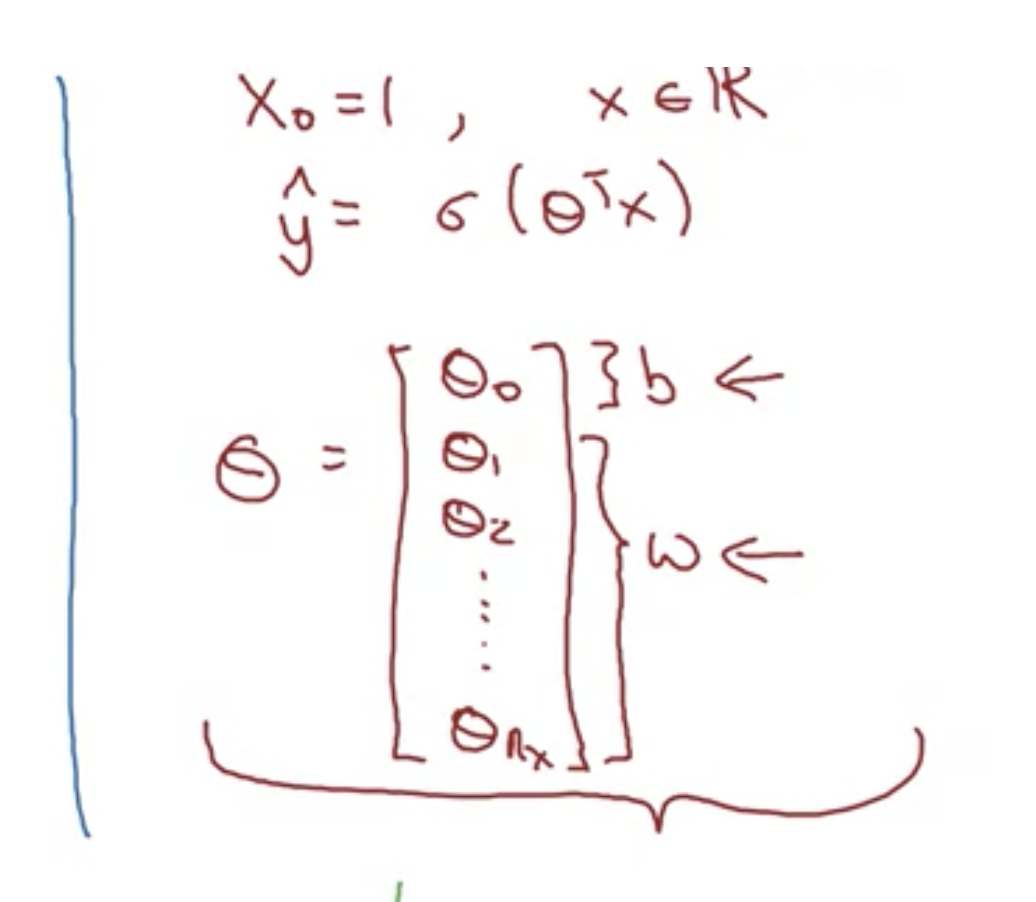 x₀ = 1 , x ∈ ℝ
ŷ = σ(θᵀx)
θ = [θ₀ θ₁ θ₂ ⋮ θₙₓ]
} b ←
} w ←